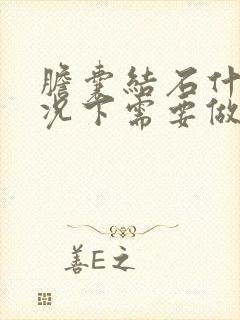 膽囊結石什
况下需要做
善E之